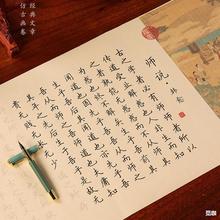 经典文章
仿古画卷
师说·韩愈
古之学者必有师师者所以
传道受业解惑也人非生而知
之者孰能无惑惑而不从师其
为惑也终不解矣生乎吾前其
闻道也固先乎吾吾从而师之
生乎吾后其闻道也亦先乎
吾吾从而师之吾师道也夫庸知
其年之先后生于吾乎是故无
贵无贱无长无少